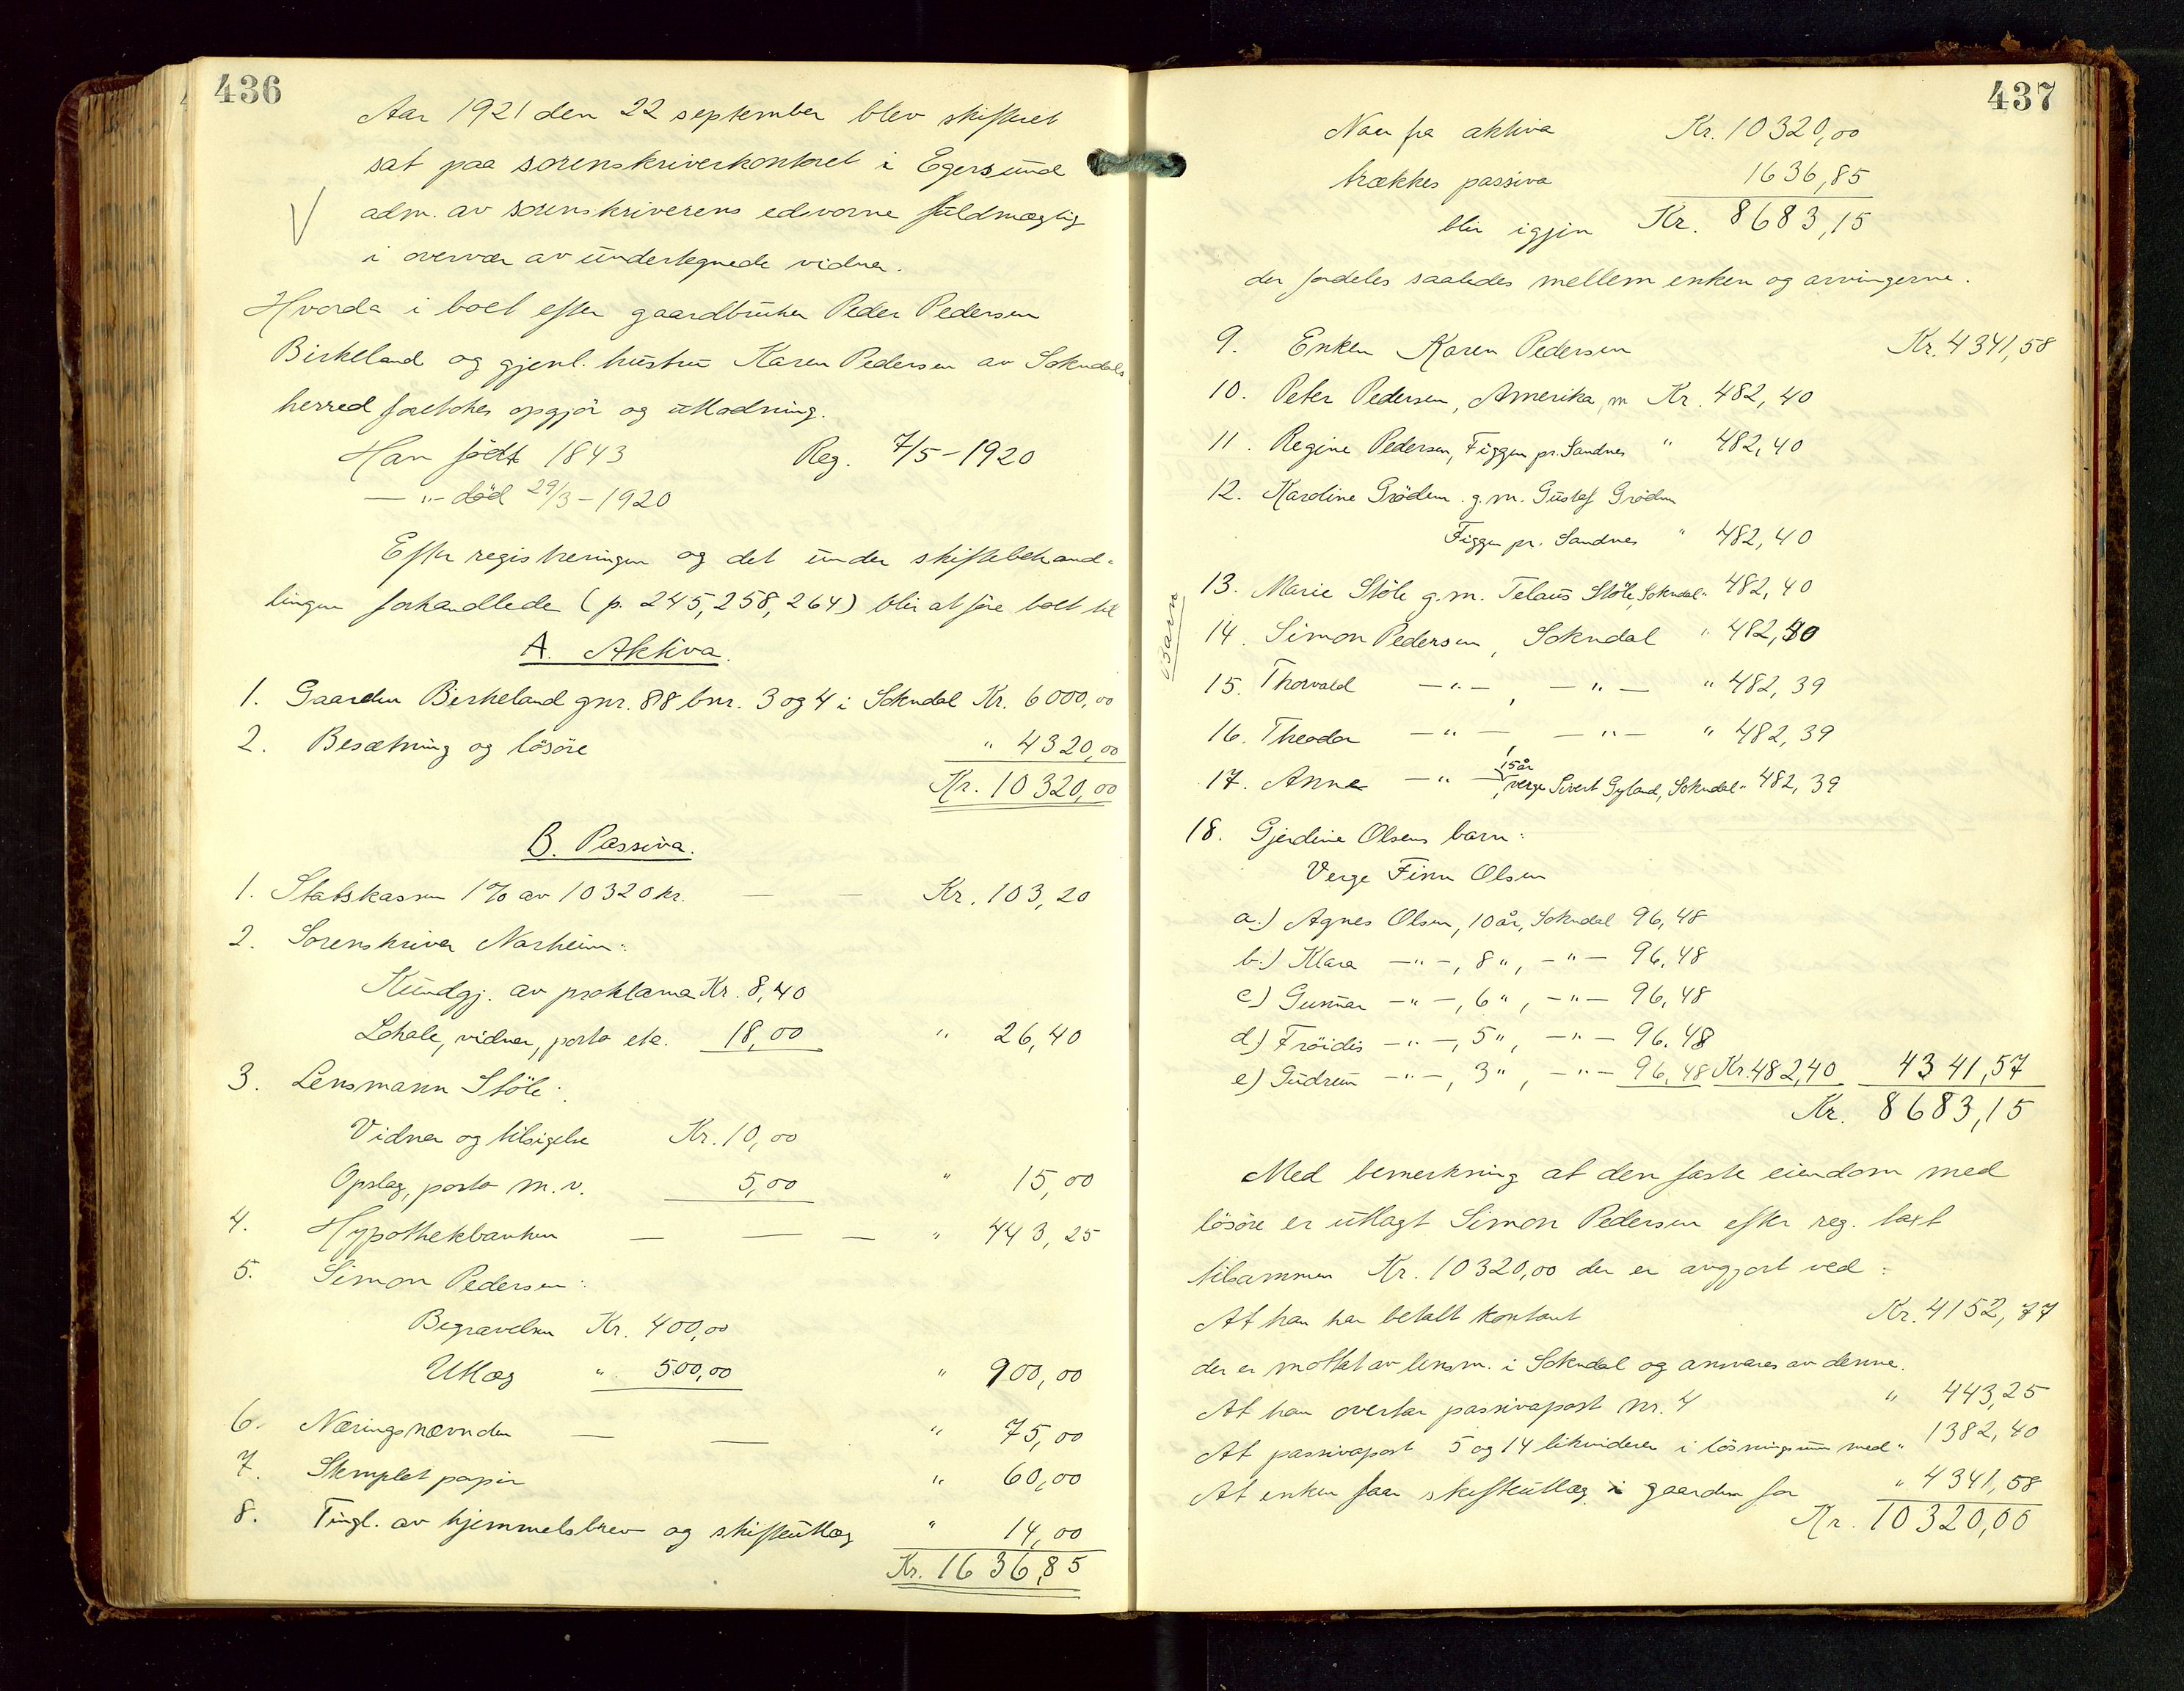 436
Aar 1921 den 22 september blev skifteret
sat paa sorenskriverkontoret i Egersund
adm. av sorenskriverens edsvorne fuldmægtig
i overvær av undertegnede vidner.
Hvorda i boet efter gaardbruker Peder Pedersen
Birkeland og gjenl. hustru Karen Pedersen av Sokndals
herred foretokes opgjør og utlodning.
Han født 1843 Reg. 7/5-1920
— " - død 29/3-1920
Efter registreringen og det under skiftebehand-
lingen forhandlede (p. 245, 258, 264) blir at føre boet til
A. Aktiva.
1. Gaarden Birkeland gnr. 88 bnr. 3 og 4 i Sokndal Kr. 6000,00
2. Besætning og løsøre " 4320,00
Kr. 10320,00
B. Passiva.
1. Statskassen 1% av 10320 kr. — — Kr. 103,20
2. Sorenskriver Norheim:
Kundgj. av proklama Kr. 8,40
Lokale, vidner, porto etc. 18,00 " 26,40
3. Lensmann Støle:
Vidner og tilsigelse Kr. 10,00
Opslag, porto m.v. 5,00 " 15,00
4. Hypothekbanken — — — " 443,25
5. Simon Pedersen:
Begravelsen Kr. 400,00
Utlæg " 500,00 " 900,00
6. Næringsnævnden — — " 75,00
7. Stemplet papir " 60,00
8. Tingl. av hjemmelsbrev og skifteutlæg " 14,00
Kr. 1636,85
437
Naar fra aktiva Kr. 10320,00
trækkes passiva 1636,85
blir igjen Kr. 8683,15
der fordeles saaledes mellem enken og arvingerne.
9. Enken Karen Pedersen Kr. 4341,58
10. Peter Pedersen, Amerika, m Kr. 482,40
11. Regine Pedersen, Figgen pr. Sandnes " 482,40
12. Karoline Grødem g.m. Gustaf Grødem
Figgen pr. Sandnes " 482,40
Barn
13. Marie Støle g.m. Telaus Støle, Sokndal " 482,40
14. Simon Pedersen, Sokndal " 482,40
15. Thorvald — " — , — " — " 482,39
16. Theodor — " — , — " — " 482,39
15 år
17. Anne — " — , verge Sivert Gyland, Sokndal " 482,39
18. Gjerdine Olsens barn:
Verge Finn Olsen
a.) Agnes Olsen, 10 år, Sokndal 96,48
b.) Klara — " —, 8 ", — " — 96,48
c) Gunnar — " —, 6 ", — " — 96,48
d) Frøidis — " —, 5 ", — " — 96,48
e) Gudrun — " —, 3 ", — " — 96,48 Kr. 482,40 4341,57
Kr. 8683,15
Med bemerkning at den faste eiendom med
løsøre er utlagt Simon Pedersen efter reg. taxt
tilsammen Kr. 10320,00 der er avgjort ved:
At han har betalt kontant Kr. 4152,77
der er mottat av lensm. i Sokndal og ansvares av denne.
At han overtar passivapost nr. 4 " 443,25
At passivapost 5 og 14 likviderer i løsningssum med " 1382,40
At enken faar skifteutlæg i gaarden for " 4341,58
Kr. 10320,00